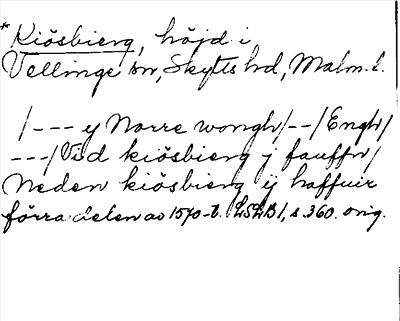 *Kiösbierg, höjd i
Vellinge sn, Skytts hrd, Malm. l.
/--- y Norre wongh/--/Engh/
---/Vid kiösbierg j fauffn/
Neden kiösbierg ij haffuir
förra delen av 1570-t. LSLB 1, s 360. orig.